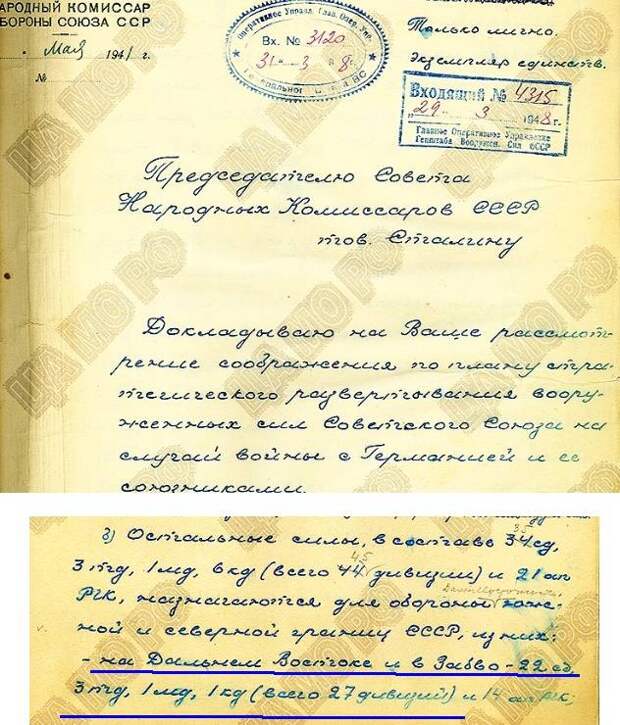 АРОДНЫЙ КОМИССАР
БОРОНЫ СОЮЗА ССР
Мая 1941 г.
№
Оперативное Управл. Глав. Опер. Упр.
Вх. № 3120
31 3 8 г.
Только лично.
Экземпляр единств.
Входящий № 4315
"29" 3 1948 г.
Главное Оперативное Управление
Генштаба Вооружен. Сил СССР
Председателю Совета
Народных Комиссаров СССР
тов. Сталину
Докладываю на Ваше рассмот-
рение соображения по плану стра-
тегического развертывания воору-
женных сил Советского Союза на
случай войны с Германией и ее
союзниками.
35
3) Остальные силы, в составе 34 сд,
45
3 тд, 1 мд, 6 кд (всего 44 дивизии) и 21 ап
РГК, назначаются для обороны
ной и северной границ СССР, из них:
- на Дальнем Востоке и в ЗабВО - 22 сд,
3 тд, 1 мд, 1 кд (всего 27 дивизий) и 14 ап РГК;
ЦА МО РФ